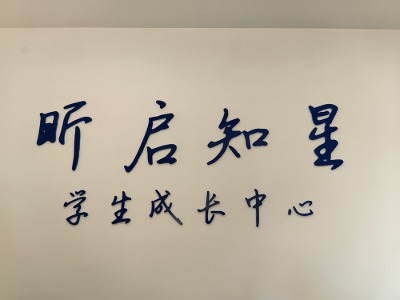 昕启知星
学生成长中心